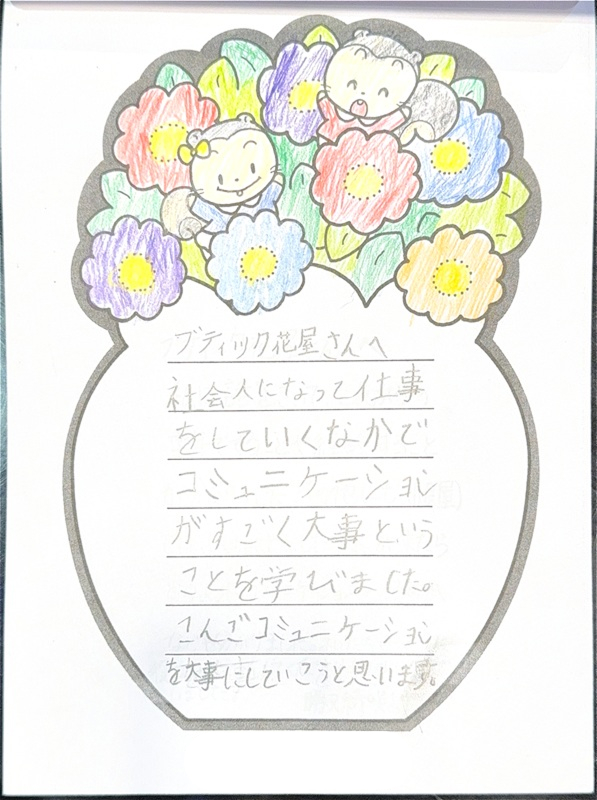 ブティック花屋さんへ
社会人になって仕事
をしていくなかで
コミュニケーション
がすごく大事という
ことを学びました。
こんごコミュニケーション
を大事にしていこうと思います。